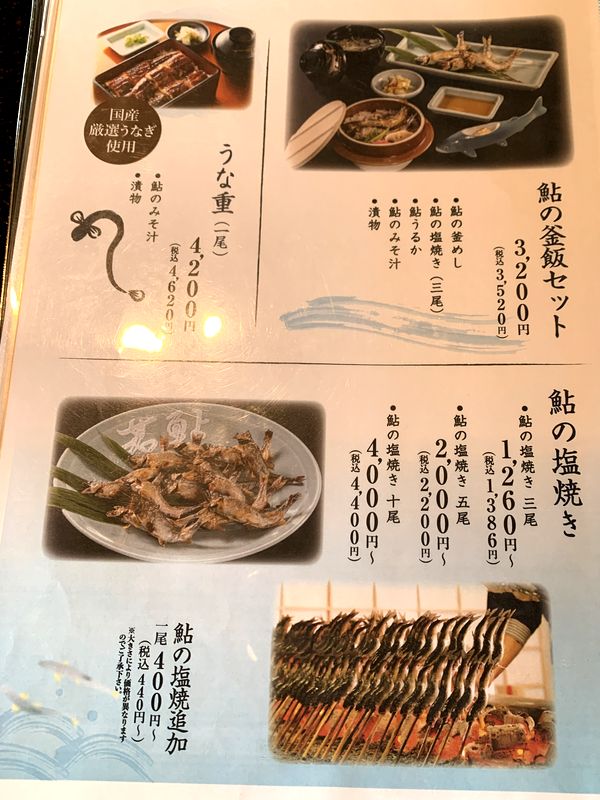 鮎の釜飯セット
3,200円
(税込3,520円)
●鮎の釜めし
●鮎の塩焼き(三尾)
●鮎うるか
●鮎のみそ汁
●漬物
うな重(一尾)
4,200円
(税込4,620円)
●鮎のみそ汁
●漬物
国産
厳選うなぎ
使用
鮎の塩焼き
●鮎の塩焼き 三尾
1,260円~
(税込1,386円)
●鮎の塩焼き 五尾
2,000円~
(税込2,200円)
●鮎の塩焼き 十尾
4,000円~
(税込4,400円)
鮎の塩焼追加
一尾400円~
(税込440円~)
※大きさにより価格が異なります
のでご了承下さい。